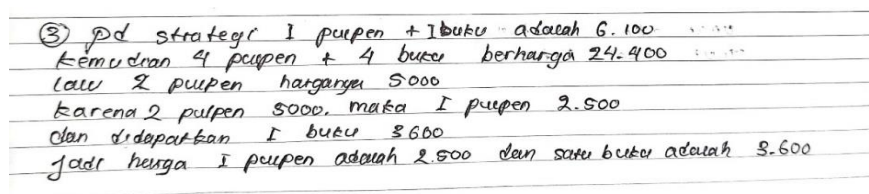 ③ pd strategi I pulpen + I buku adalah 6.100
kemudian 4 pulpen + 4 buku berharga 24.400
lalu 2 pulpen harganya 5000
karena 2 pulpen 5000. maka I pulpen 2.500
dan didapatkan I buku 3600
Jadi harga I pulpen adalah 2.500 dan satu buku adalah 3.600